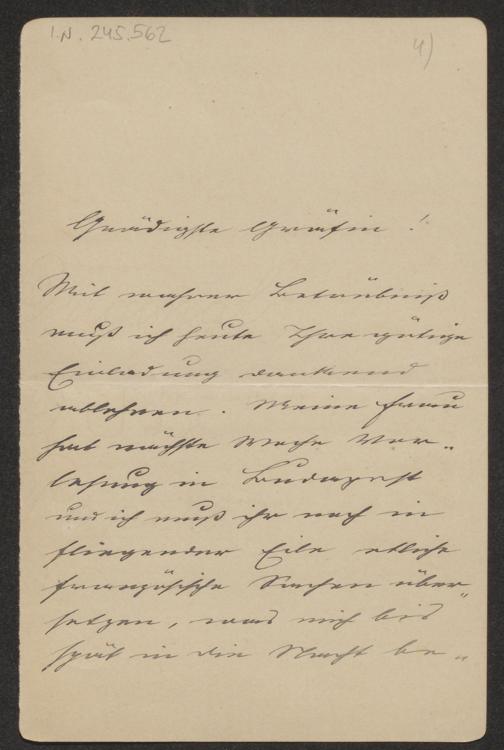 I.N. 245.562
4)
Gnädigste Gräfin!
Mit wahrer Betrübniß
muß ich heute Ihre gütige
Einladung dankend
ablehnen. Meine Frau
hat nächste Woche Vor-
lesung in Budapest
und ich muß ihr noch in
fliegender Eile etliche
französische Sachen über-
setzen, was mich bis
spät in die Nacht be-